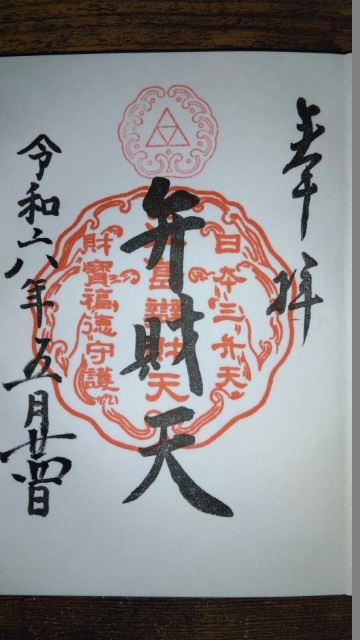 奉拝
日本三弁天
江島辨財天
財寶福徳守護
弁財天
令和六年五月廿四日